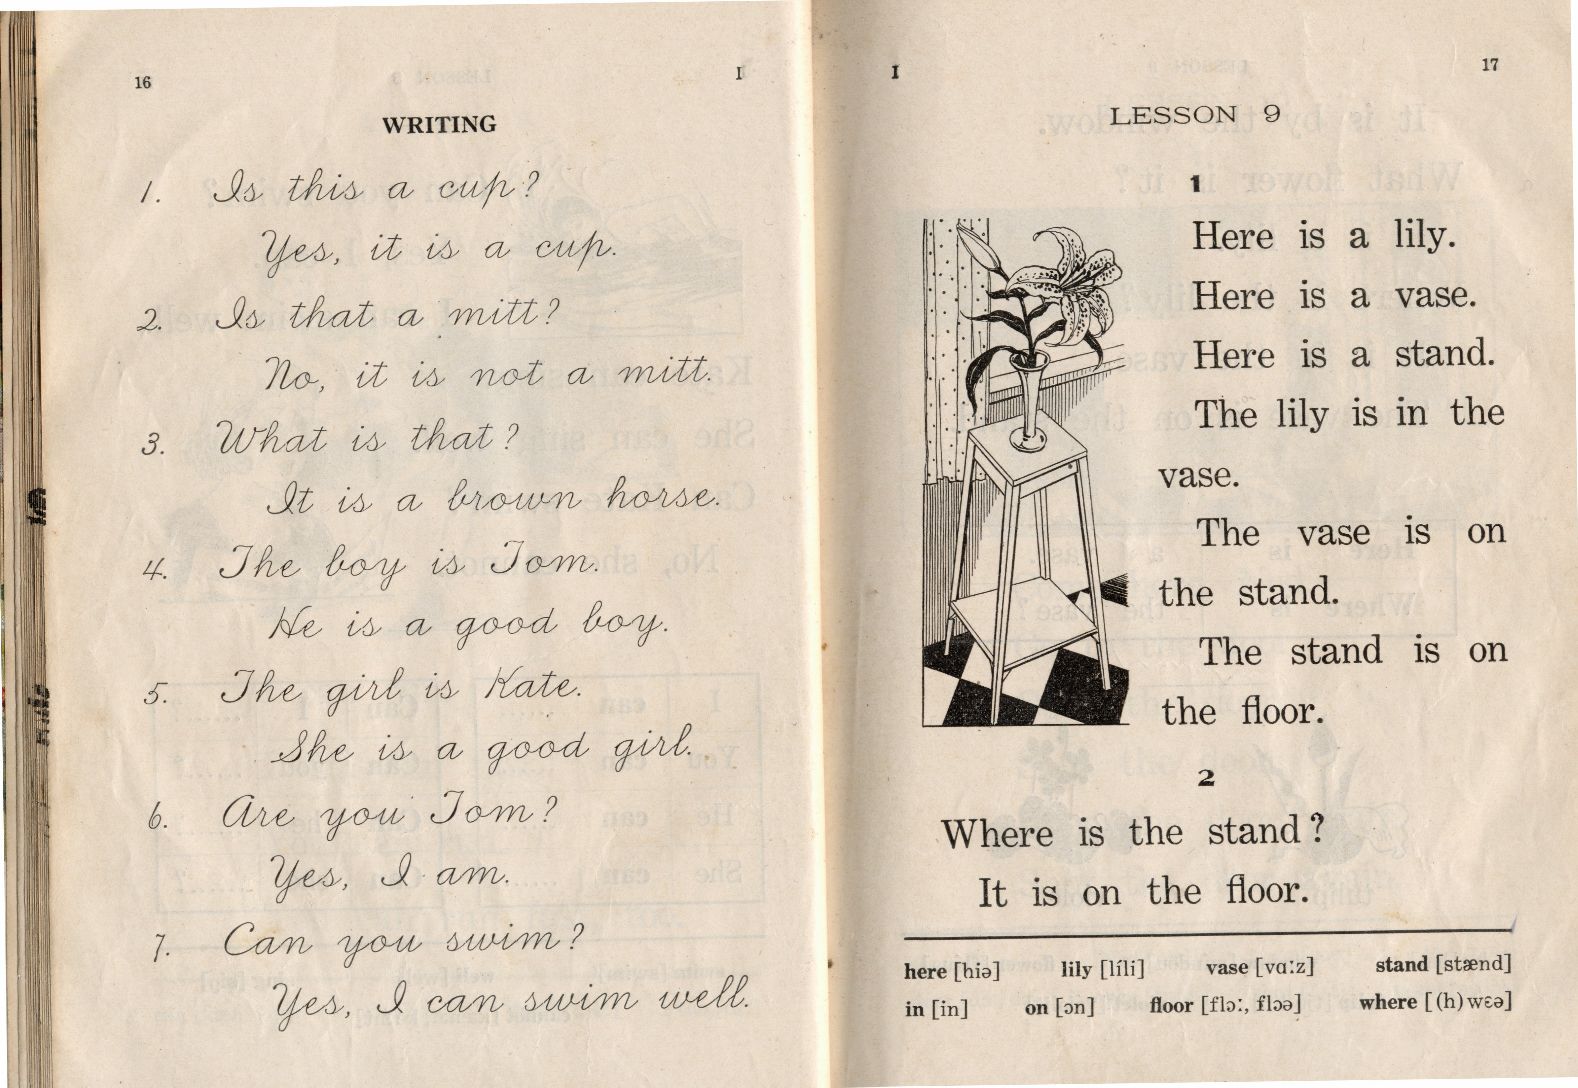 16
I
WRITING
1. Is this a cup?
Yes, it is a cup.
2. Is that a mitt?
No, it is not a mitt.
3. What is that?
It is a brown horse.
4. The boy is Tom.
He is a good boy.
5. The girl is Kate.
She is a good girl.
6. Are you Tom?
Yes, I am.
7. Can you swim?
Yes, I can swim well.
I
17
LESSON 9
1
Here is a lily.
Here is a vase.
Here is a stand.
The lily is in the
vase.
The vase is on
the stand.
The stand is on
the floor.
2
Where is the stand?
It is on the floor.
here [hiə] lily [líli] vase [vɑːz] stand [stænd]
in [in] on [ɔn] floor [flɔː, flɔə] where [(h)wɛə]